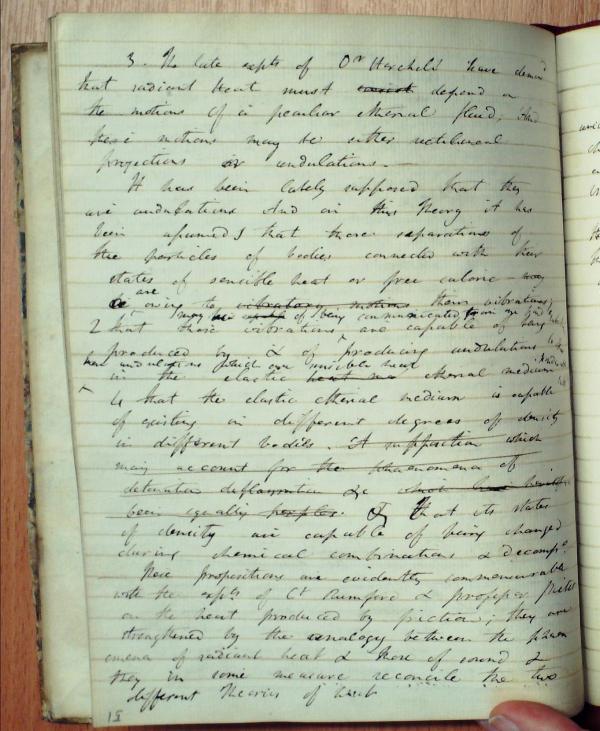 3. The late expts of Dr Herchell have demon
that radiant heat must consist depend on
the motions of a peculiar etherial fluid, And
these motions may be either rectilineal
projections or undulations. —
It has been lately supposed that they
are undulations And on this theory it has
been assumed 1 that those separations of
the particles of bodies connected with their
states of sensible heat or free caloric
are owing to vibratory motions their vibrations;
may be of being communicated from one to
2 that those vibrations are capable of being
produced by & of producing undulations
undulations which are invisible heat
in the elastic etherial medium
4 that the elastic etherial medium is capable
of existing in different degrees of density
in different bodies. A supposition which
may account for the phaenomena of
detonation deflagration &c
been equally & that its states
of density are capable of being changed
during chemical combinations & decomps.
These propositions are evidently commensurable
with the expts of Ct Rumford & professor Pictet
on the heat produced by friction; they are
strengthened by the analogy between the phaen
omena of radiant heat & those of sound &
they in some measure reconcile the two
different theories of heat